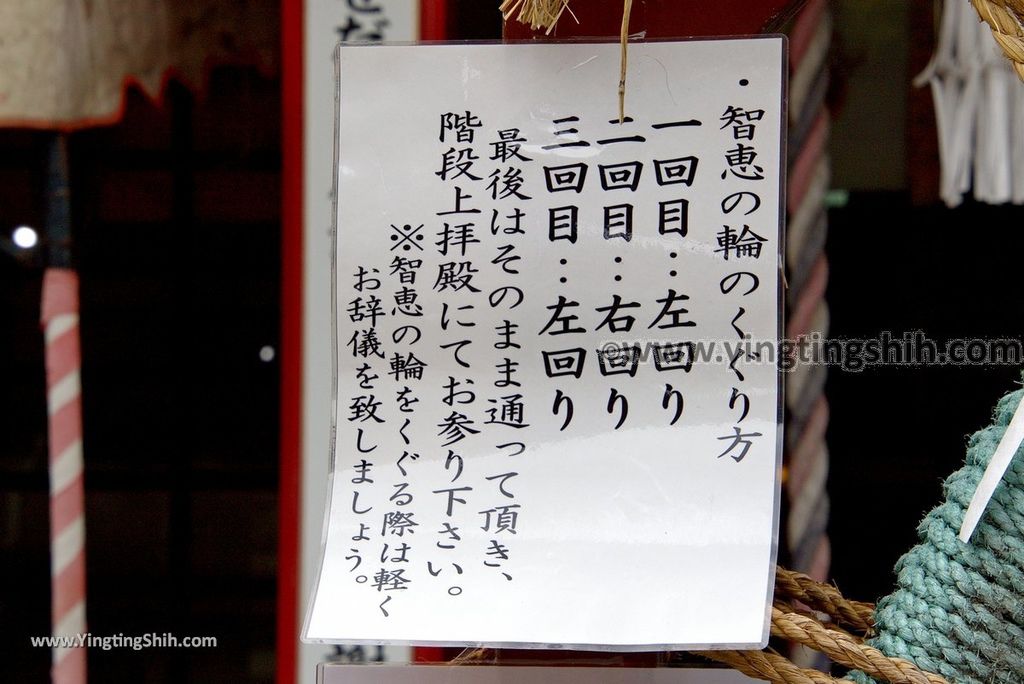 ・智恵の輪のくぐり方
一回目…左回り
二回目…右回り
三回目…左回り
最後はそのまま通って頂き、
階段上拝殿にてお参り下さい。
※智恵の輪をくぐる際は軽く
お辞儀を致しましょう。
©www.yingtingshih.com
www.YingtingShih.com